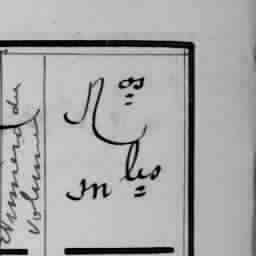 Numero du
volume
Nos
mles